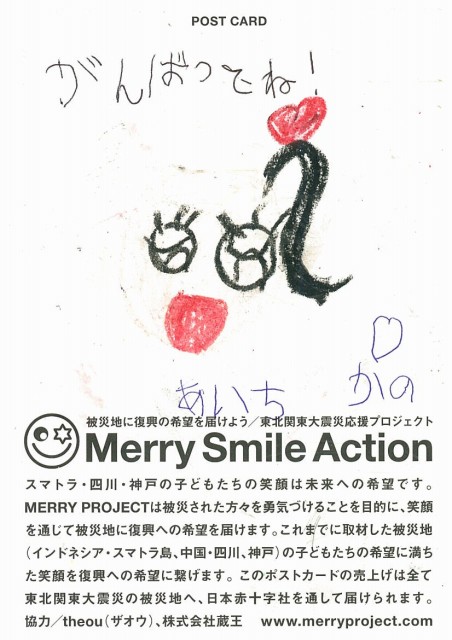 POST CARD
がんばってね！
あいち
かの
被災地に復興の希望を届けよう／東北関東大震災応援プロジェクト
Merry Smile Action
スマトラ・四川・神戸の子どもたちの笑顔は未来への希望です。
MERRY PROJECTは被災された方々を勇気づけることを目的に、笑顔
を通じて被災地に復興への希望を届けます。これまでに取材した被災地
（インドネシア・スマトラ島、中国・四川、神戸）の子どもたちの希望に満ち
た笑顔を復興への希望に繋げます。このポストカードの売上げは全て
東北関東大震災の被災地へ、日本赤十字社を通して届けられます。
協力／theou（ザオウ）、株式会社蔵王 www.merryproject.com